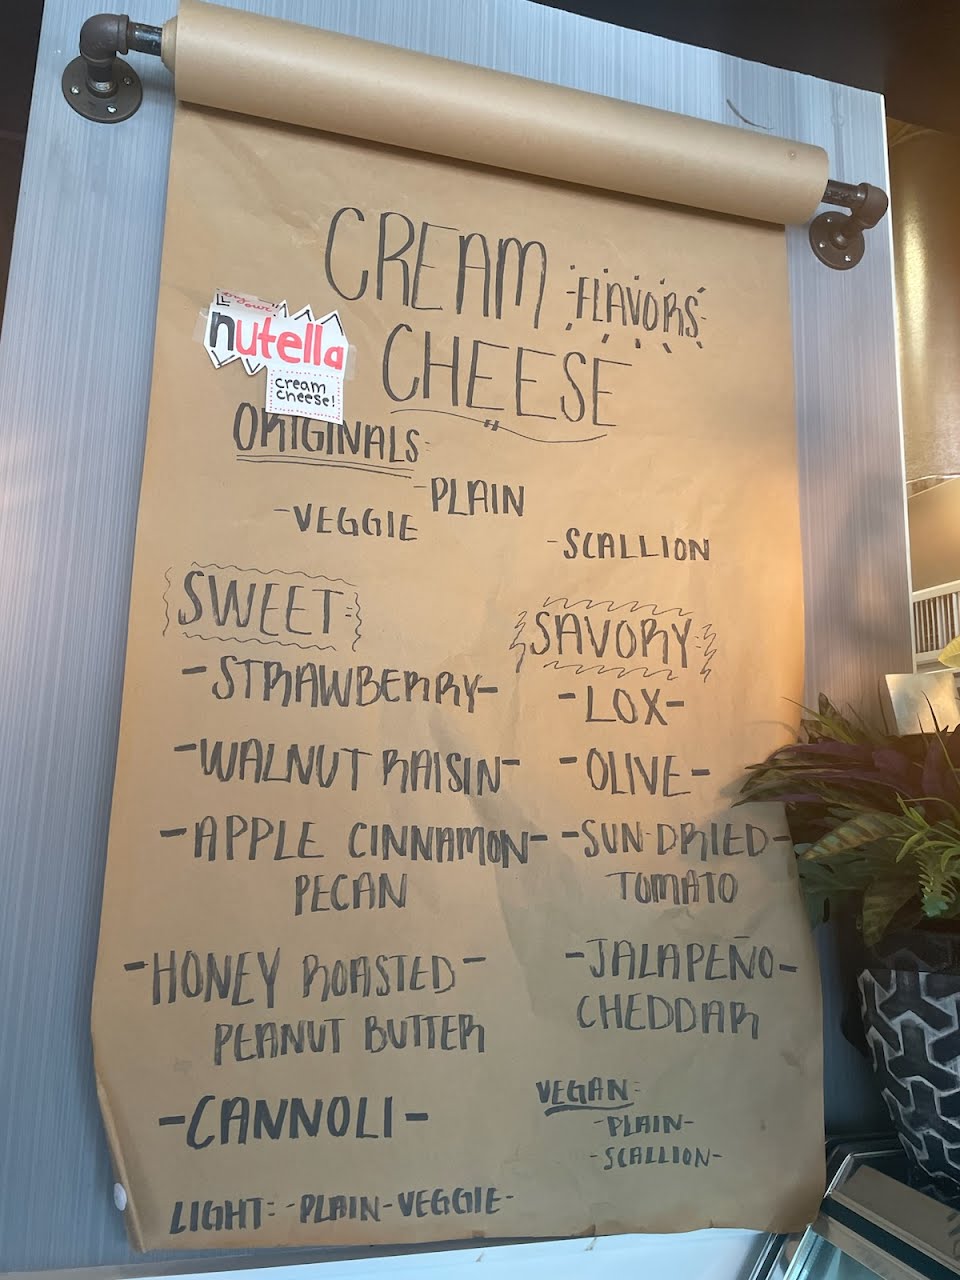 CREAM
FLAVORS
CHEESE
try our
nutella
cream
cheese!
ORIGINALS:
-PLAIN
-VEGGIE
-SCALLION
SWEET:
-STRAWBERRY-
-WALNUT RAISIN-
-APPLE CINNAMON-
PECAN
-HONEY ROASTED-
PEANUT BUTTER
-CANNOLI-
SAVORY:
-LOX-
-OLIVE-
-SUN-DRIED-
TOMATO
-JALAPEÑO-
CHEDDAR
VEGAN:
-PLAIN-
-SCALLION-
LIGHT: -PLAIN-VEGGIE-